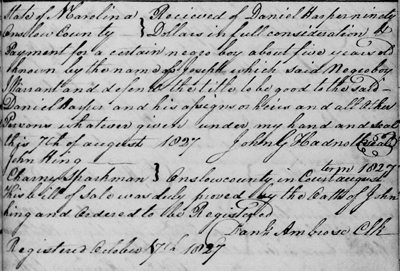 State of N Carolina } Recieved of Daniel Harper ninety
Onslow County } Dollars in full consideration &
Payment for a certain negro boy about five years old
known by the name of Joseph, which said Negro boy
I Warrant and defend the title to be good to the said
Daniel Harper and his assigns or Heirs and all other
Persons whatever given under my hand and seal
this 7th of august 1827 John G Hadnot (Seal)
John King
Charny Sparkman } Onslow county in Court august term 1827
This bill of sale was duly proved by the Oath of John
King and Ordered to be Registered
Nank Ambrose Clk
Registered October 1827